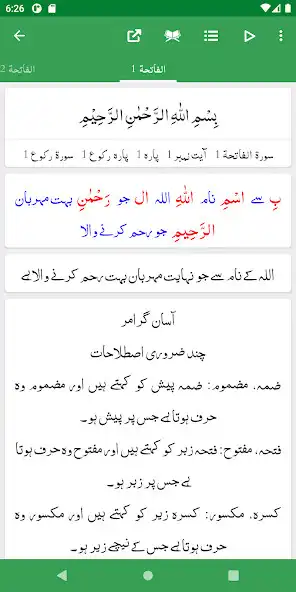 6:26
الفاتحة 1
الفاتحة 2
بِسْمِ اللّٰهِ الرَّحْمٰنِ الرَّحِيْمِ
سورة الفاتحة 1 آیت نمبر 1 پارہ 1 پارہ رکوع 1 سورۃ رکوع 1
بِ سے اسْمِ نام اللّٰهِ اللہ ال جو رَحْمٰنِ بہت مہربان
الرَّحِيمِ جو رحم کرنے والا
اللہ کے نام سے جو نہایت مہربان بہت رحم کرنے والا ہے
آسان گرامر
چند ضروری اصطلاحات
ضمہ، مضموم: ضمہ پیش کو کہتے ہیں اور مضموم وہ
حرف ہوتا ہے جس پر پیش ہو۔
فتحہ، مفتوح: فتحہ زبر کو کہتے ہیں اور مفتوح وہ حرف ہوتا
ہے جس پر زبر ہو۔
کسرہ، مکسور: کسرہ زیر کو کہتے ہیں اور مکسور وہ
حرف ہوتا ہے جس کے نیچے زیر ہو۔